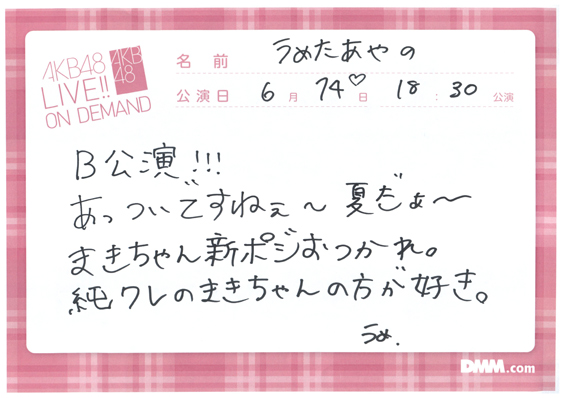 AKB48
LIVE!!
ON DEMAND
AKB
48
名前 うめたあやの
公演日 6月14♡日 18:30公演
B公演!!!
あっついですねぇ〜 夏だぁ〜
まきちゃん新ポジおつかれ。
純クレのまきちゃんの方が好き。
うめ.
DMM.com